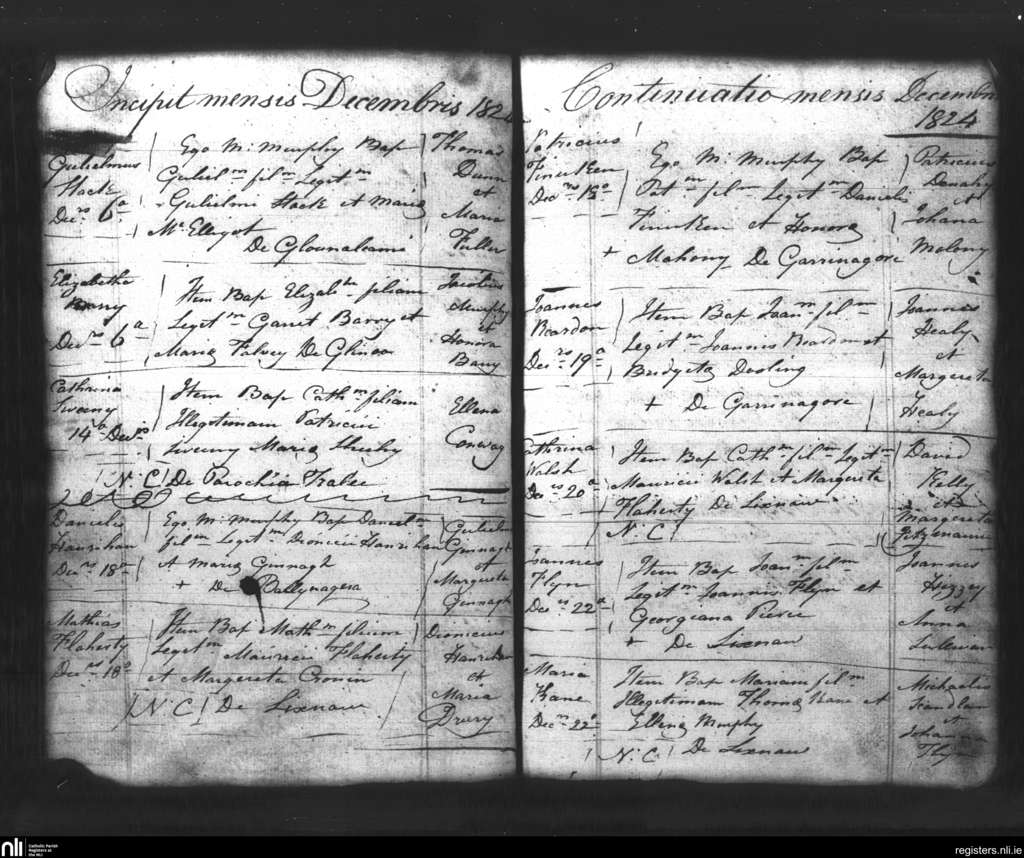 Incipit mensis Decembris 1824
Gulielmus
Hack
Decrs 6a
Ego M: Murphy Bap
Gulielm film Legitm
Gulielmi Hack et Maria
Mc Elligot
De Glounaleami
Thomas
Dunn
et
Maria
Fuller
Elizabetha
Barry
Decrs 6a
Item Bap Elizabtm filiam
Legitm Garret Barry et
Maria Falvey De
Jacobus
Murphy
et
Honora
Barry
Cathrina
Sweeny
14a Decrs
Item Bap Cathm filiam
Illegitimam Patricii
Sweeny Maria Sheehy
N: C De Parochia Tralee
Ellena
Conway
Daniels
Hanrihan
Decrs 18a
Ego M: Murphy Bap Danielm
film Legitm Dionicii Hanrihan
et Maria Gunnagh
+ De Ballynagera
Gulielm
Gunnagh
et
Margereta
Gunnagh
Mathias
Flaherty
Decrs 18a
Item Bap Mathm filium
Legitm Mauricii Flaherty
et Margereta Cronin
N: C De Lixnaw
Dionicius
Hanrihan
et
Maria
Drury
Continuatio mensis Decembris
1824
Patricius
Finucken
Decrs 18a
Ego M: Murphy Bap
Patm film Legitm Danielis
Finucken et Honora
+ Mahony De Garrinagore
Patricius
Denahy
et
Johana
Molony
Joannes
Reardon
Decrs 19a
Item Bap Joanm film
Legitm Joannis Reardon et
Bridgeta Dooling
+ De Garrinagore
Joannes
Healy
et
Margereta
Healy
Cathrina
Walsh
Decrs 20a
Item Bap Cathm film Legitm
Mauricii Walsh et Margereta
Flaherty De Lixnaw
N: C
David
Kelly
et
Margereta
Fitzmaurice
Joannes
Flyn
Decrs 22a
Item Bap Joanm film
Legitm Joannis Flyn et
Georgiana Pierce
+ De Lixnaw
Joannes
Huzzey
et
Anna
Sulivan
Maria
Kane
Decrs 22a
Item Bap Mariam film
Illegitimam Thoma Kane et
Ellena Murphy
N: C De Lixnaw
Michaelis
et
Johanna
Flyn
nli
Catholic Parish
Registers at
the NLI
registers.nli.ie